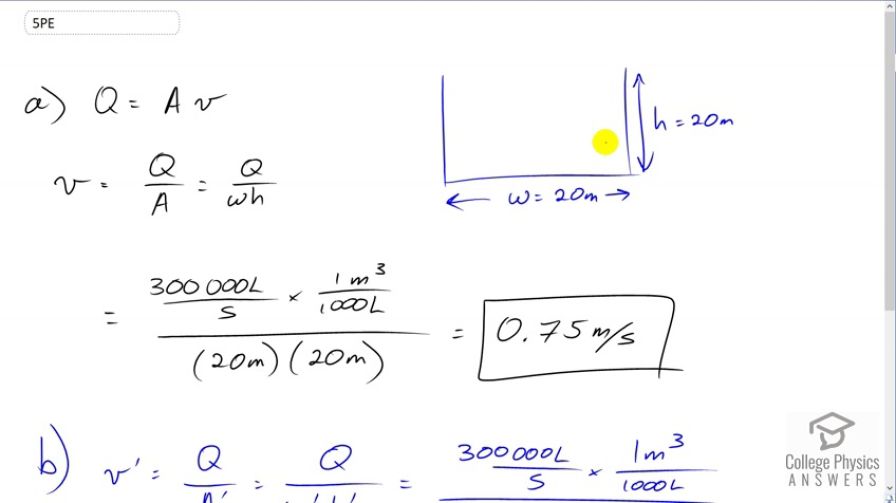 5PE
a) Q = A v
h = 20m
v = Q/A = Q/wh
w = 20m
= (300 000L/s × 1m³/1000L) / ((20m)(20m)) = 0.75 m/s
b) v' = Q/A' = Q = 300 000L/s × 1m³/1000L
College Physics
ANSWERS